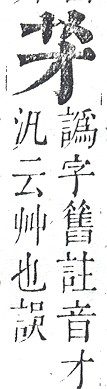 譌字舊註音才
汎云艸也誤